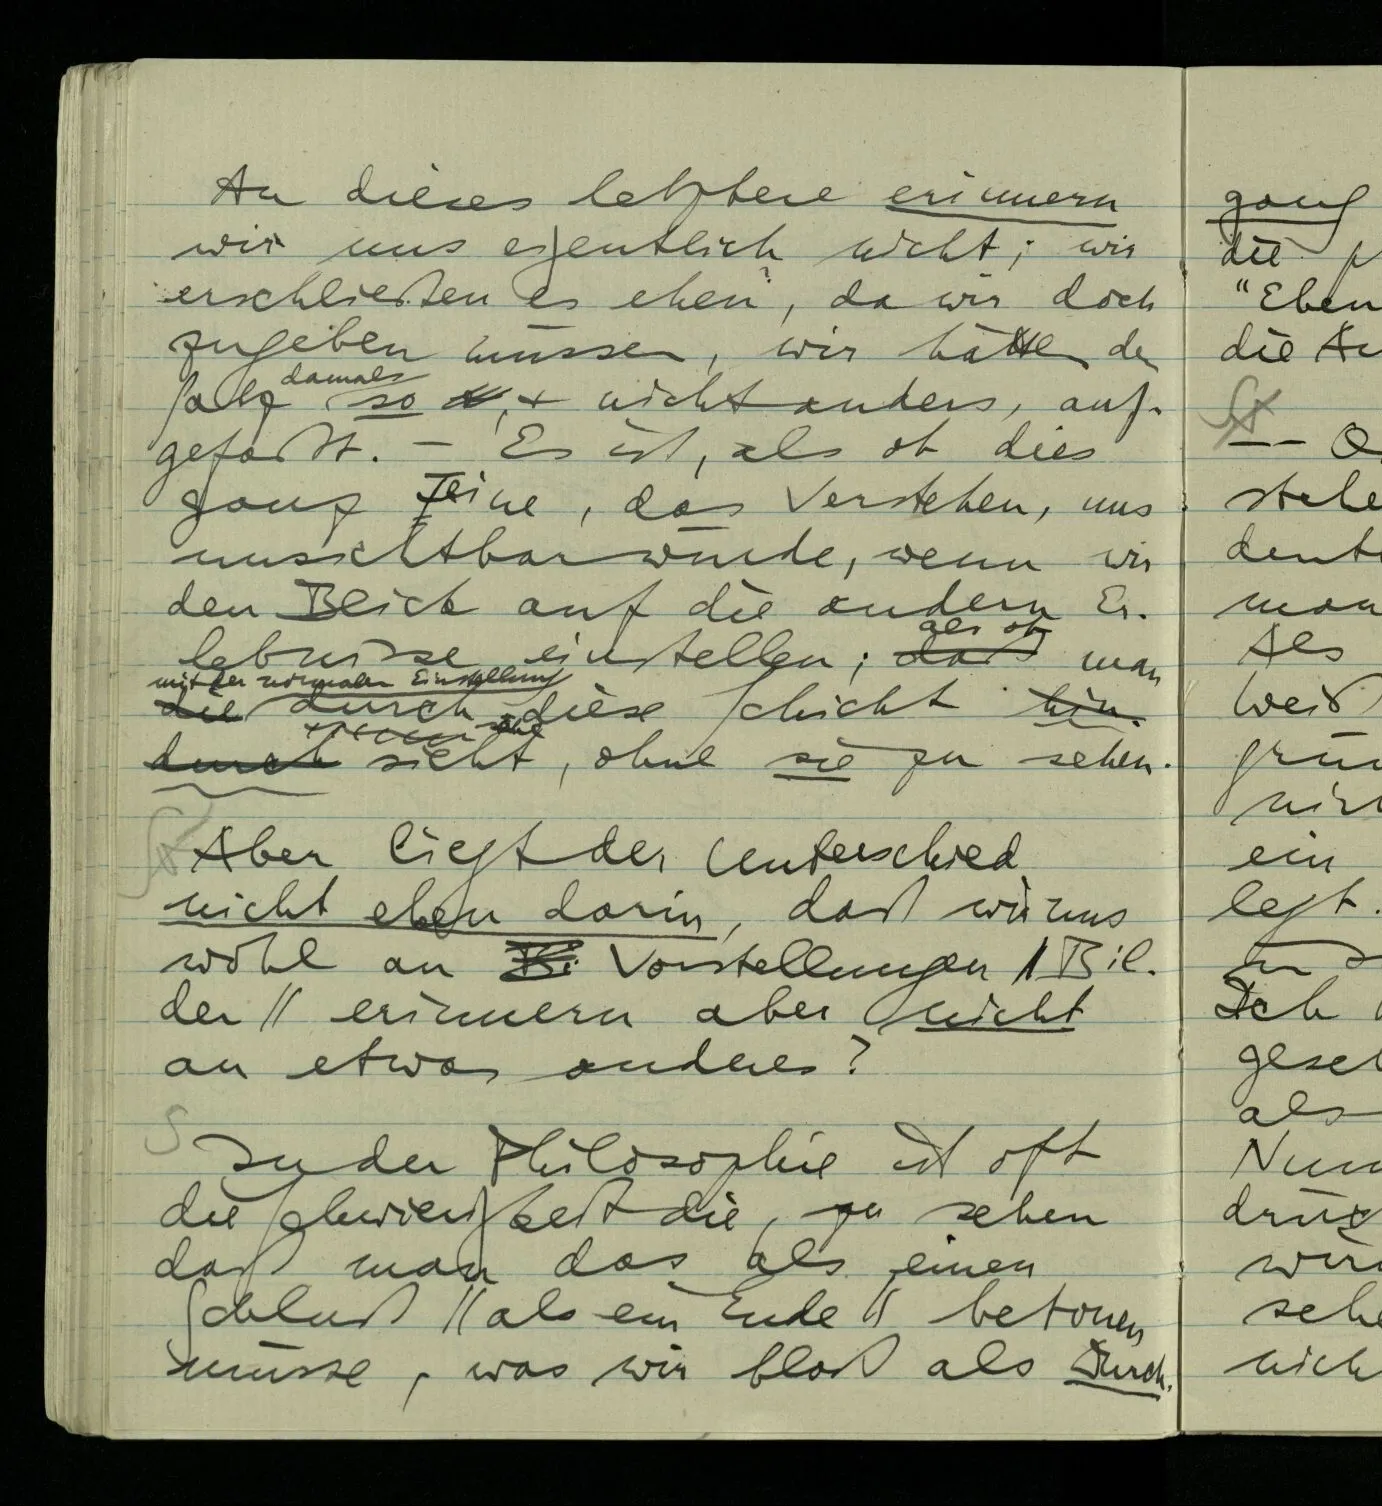 An dieses letztere erinnern
wir uns eigentlich nicht; wir
erschließen es eher, da wir doch
zugeben müssen, wir hätten den
damals
Satz so , + nicht anders, auf-
gefaßt. – Es ist, als ob dies
ganz Feine, das Verstehen, uns
unsichtbar würde, wenn wir
den Blick auf die andern Er-
als ob
lebnisse einstellen; daß man
mit der normalen Einstellung
die durch diese Schicht hin-
durch sieht, ohne sie zu sehen.
Aber liegt der Unterschied
nicht eben darin, daß wir uns
wohl an Vorstellungen // Bil-
der // erinnern aber nicht
an etwas anderes?
S
In der Philosophie ist oft
die Schwierigkeit die, zu sehen
daß man das als einen
Schluß // als ein Ende // betonen
müsse, was wir bloß als Durch-
gang
die
"Eben
die
ein
legt.
Ich
als